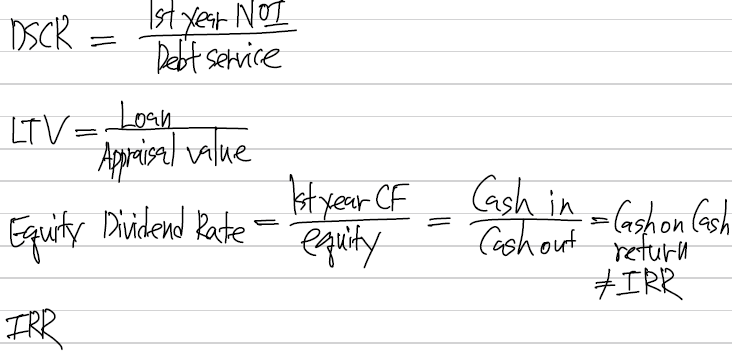 DSCR = 1st year NOI / Debt service
LTV = Loan / Appraisal value
Equity Dividend Rate = 1st year CF / equity = Cash in / Cash out = Cash on Cash
return
≠ IRR
IRR